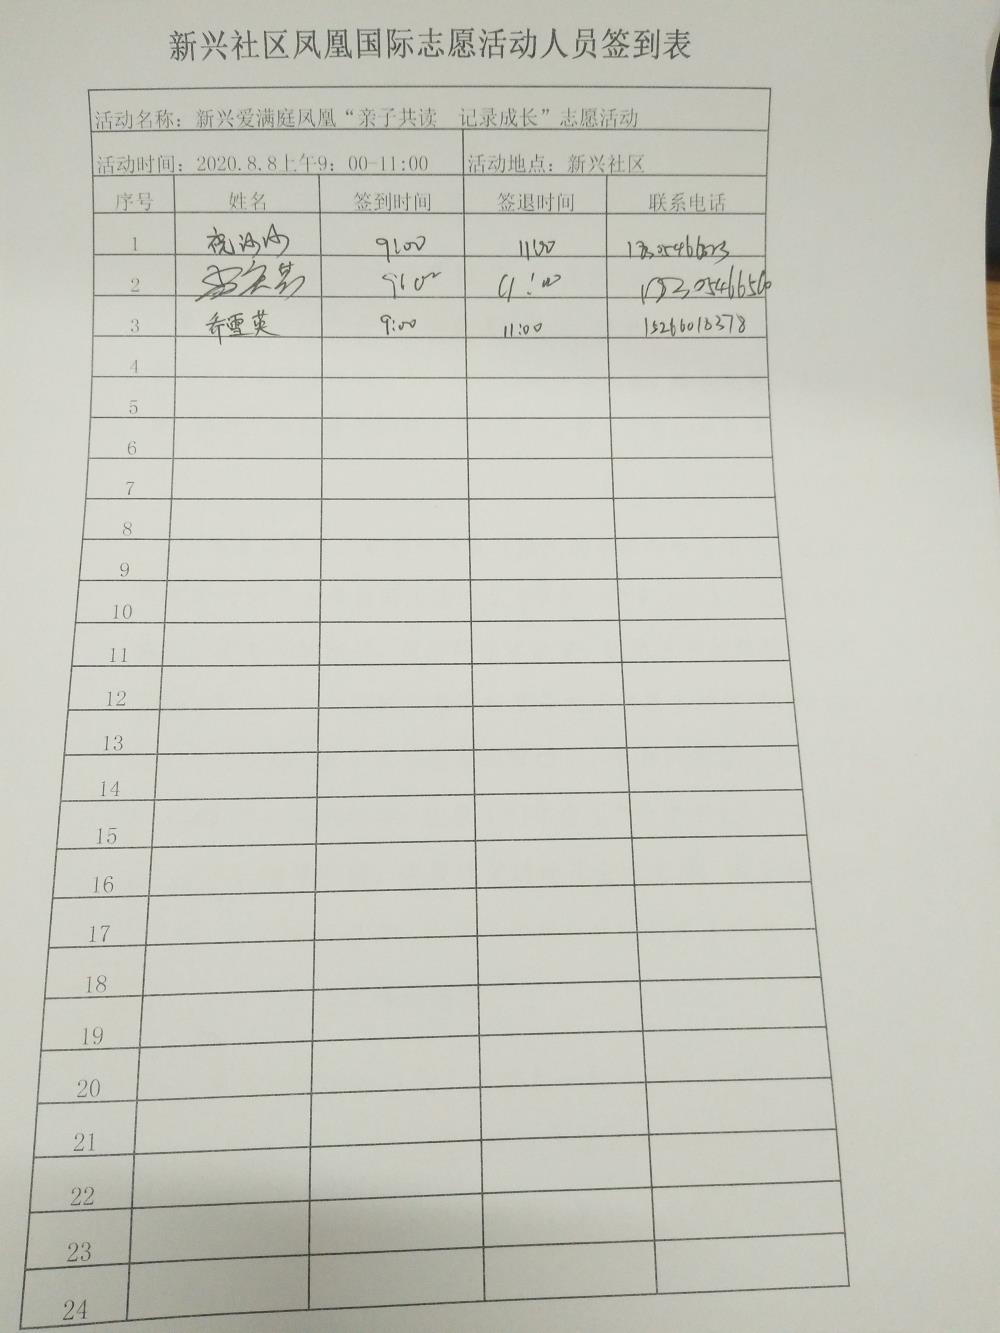 新兴社区凤凰国际志愿活动人员签到表
活动名称：新兴爱满庭凤凰“亲子共读 记录成长”志愿活动
活动时间：2020.8.8上午9：00-11:00 活动地点：新兴社区
序号 姓名 签到时间 签退时间 联系电话
1 祝沙沙 9:00 11:00
2 9:00 11:00
3 乔雪英 9:00 11:00 15266018378
4
5
6
7
8
9
10
11
12
13
14
15
16
17
18
19
20
21
22
23
24